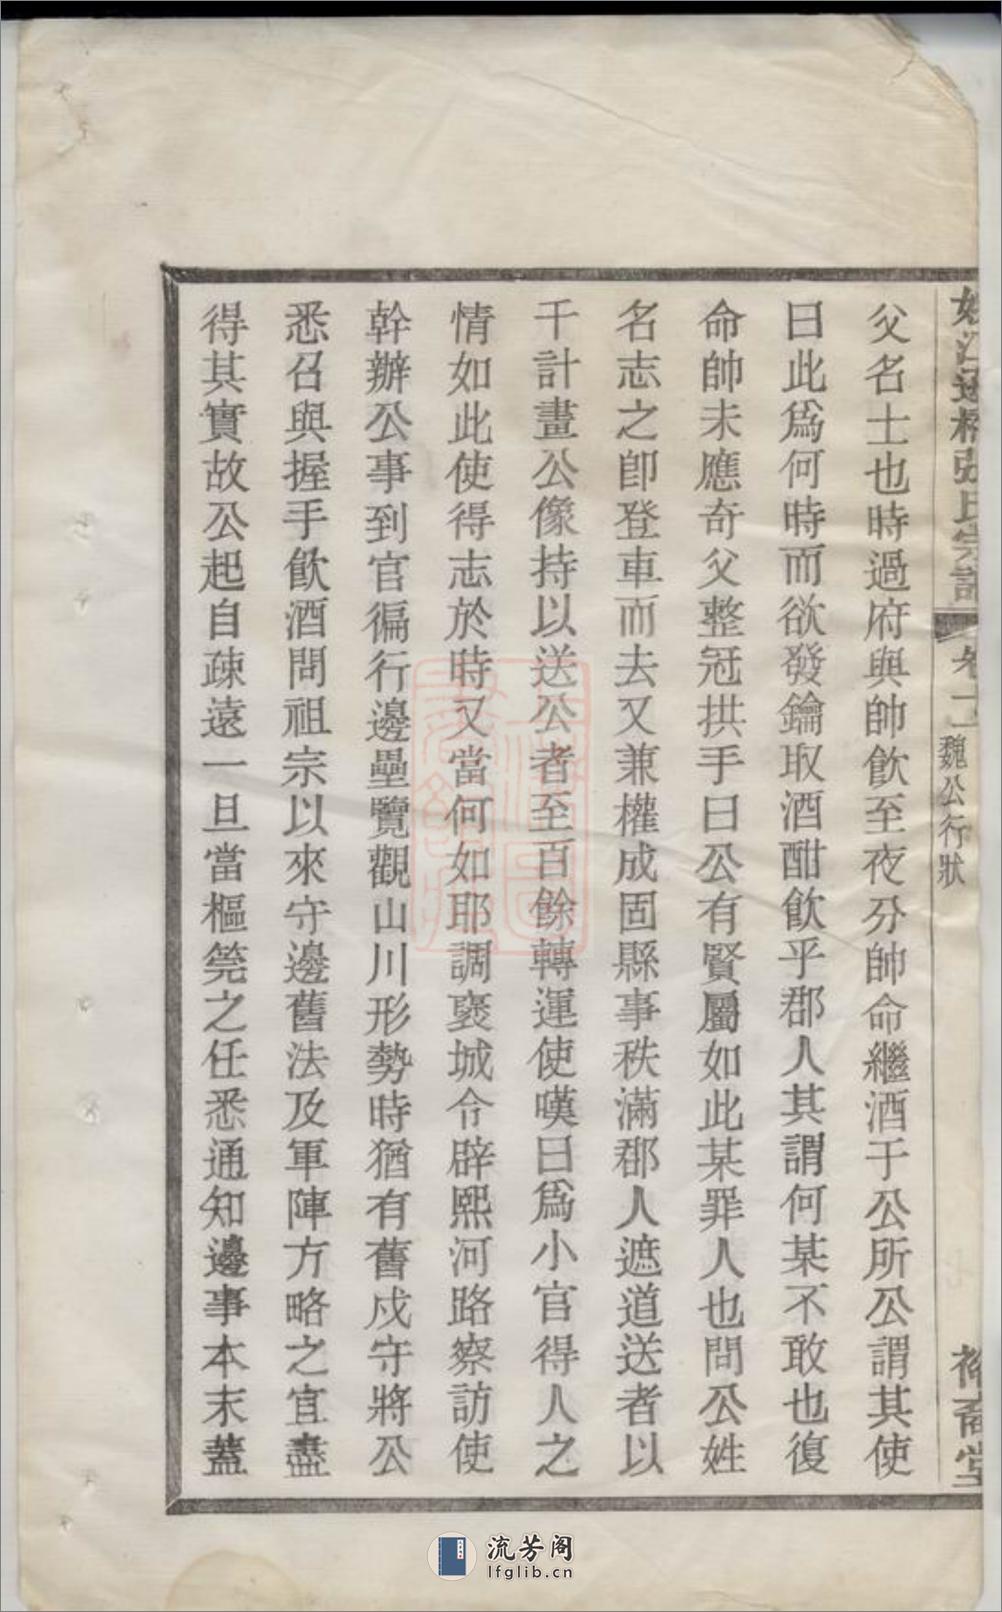 父名士也時過府與帥飲至夜分帥命繼酒于公所公謂其使
曰此爲何時而欲發鑰取酒酣飲乎郡人其謂何某不敢也復
命帥未應奇父整冠拱手曰公有賢屬如此某罪人也問公姓
名志之卽登車而去又兼權成固縣事秩滿郡人遮道送者以
千計畫公像持以送公者至百餘轉運使嘆曰爲小官得人之
情如此使得志於時又當何如耶調褒城令辟熙河路察訪使
幹辦公事到官徧行邊壘覽觀山川形勢時猶有舊戍守將公
悉召與握手飲酒問祖宗以來守邊舊法及軍陣方略之宜盡
得其實故公起自疎遠一旦當樞筦之任悉通知邊事本末蓋
張氏宗譜
魏公行狀
裕堂
流芳阁
lfglib.cn